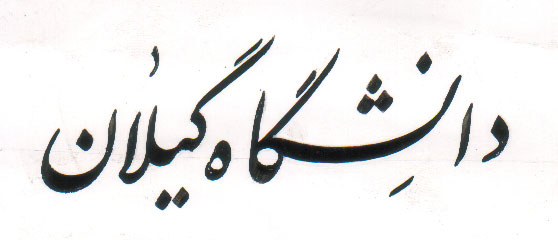 دانشگاه گیلان